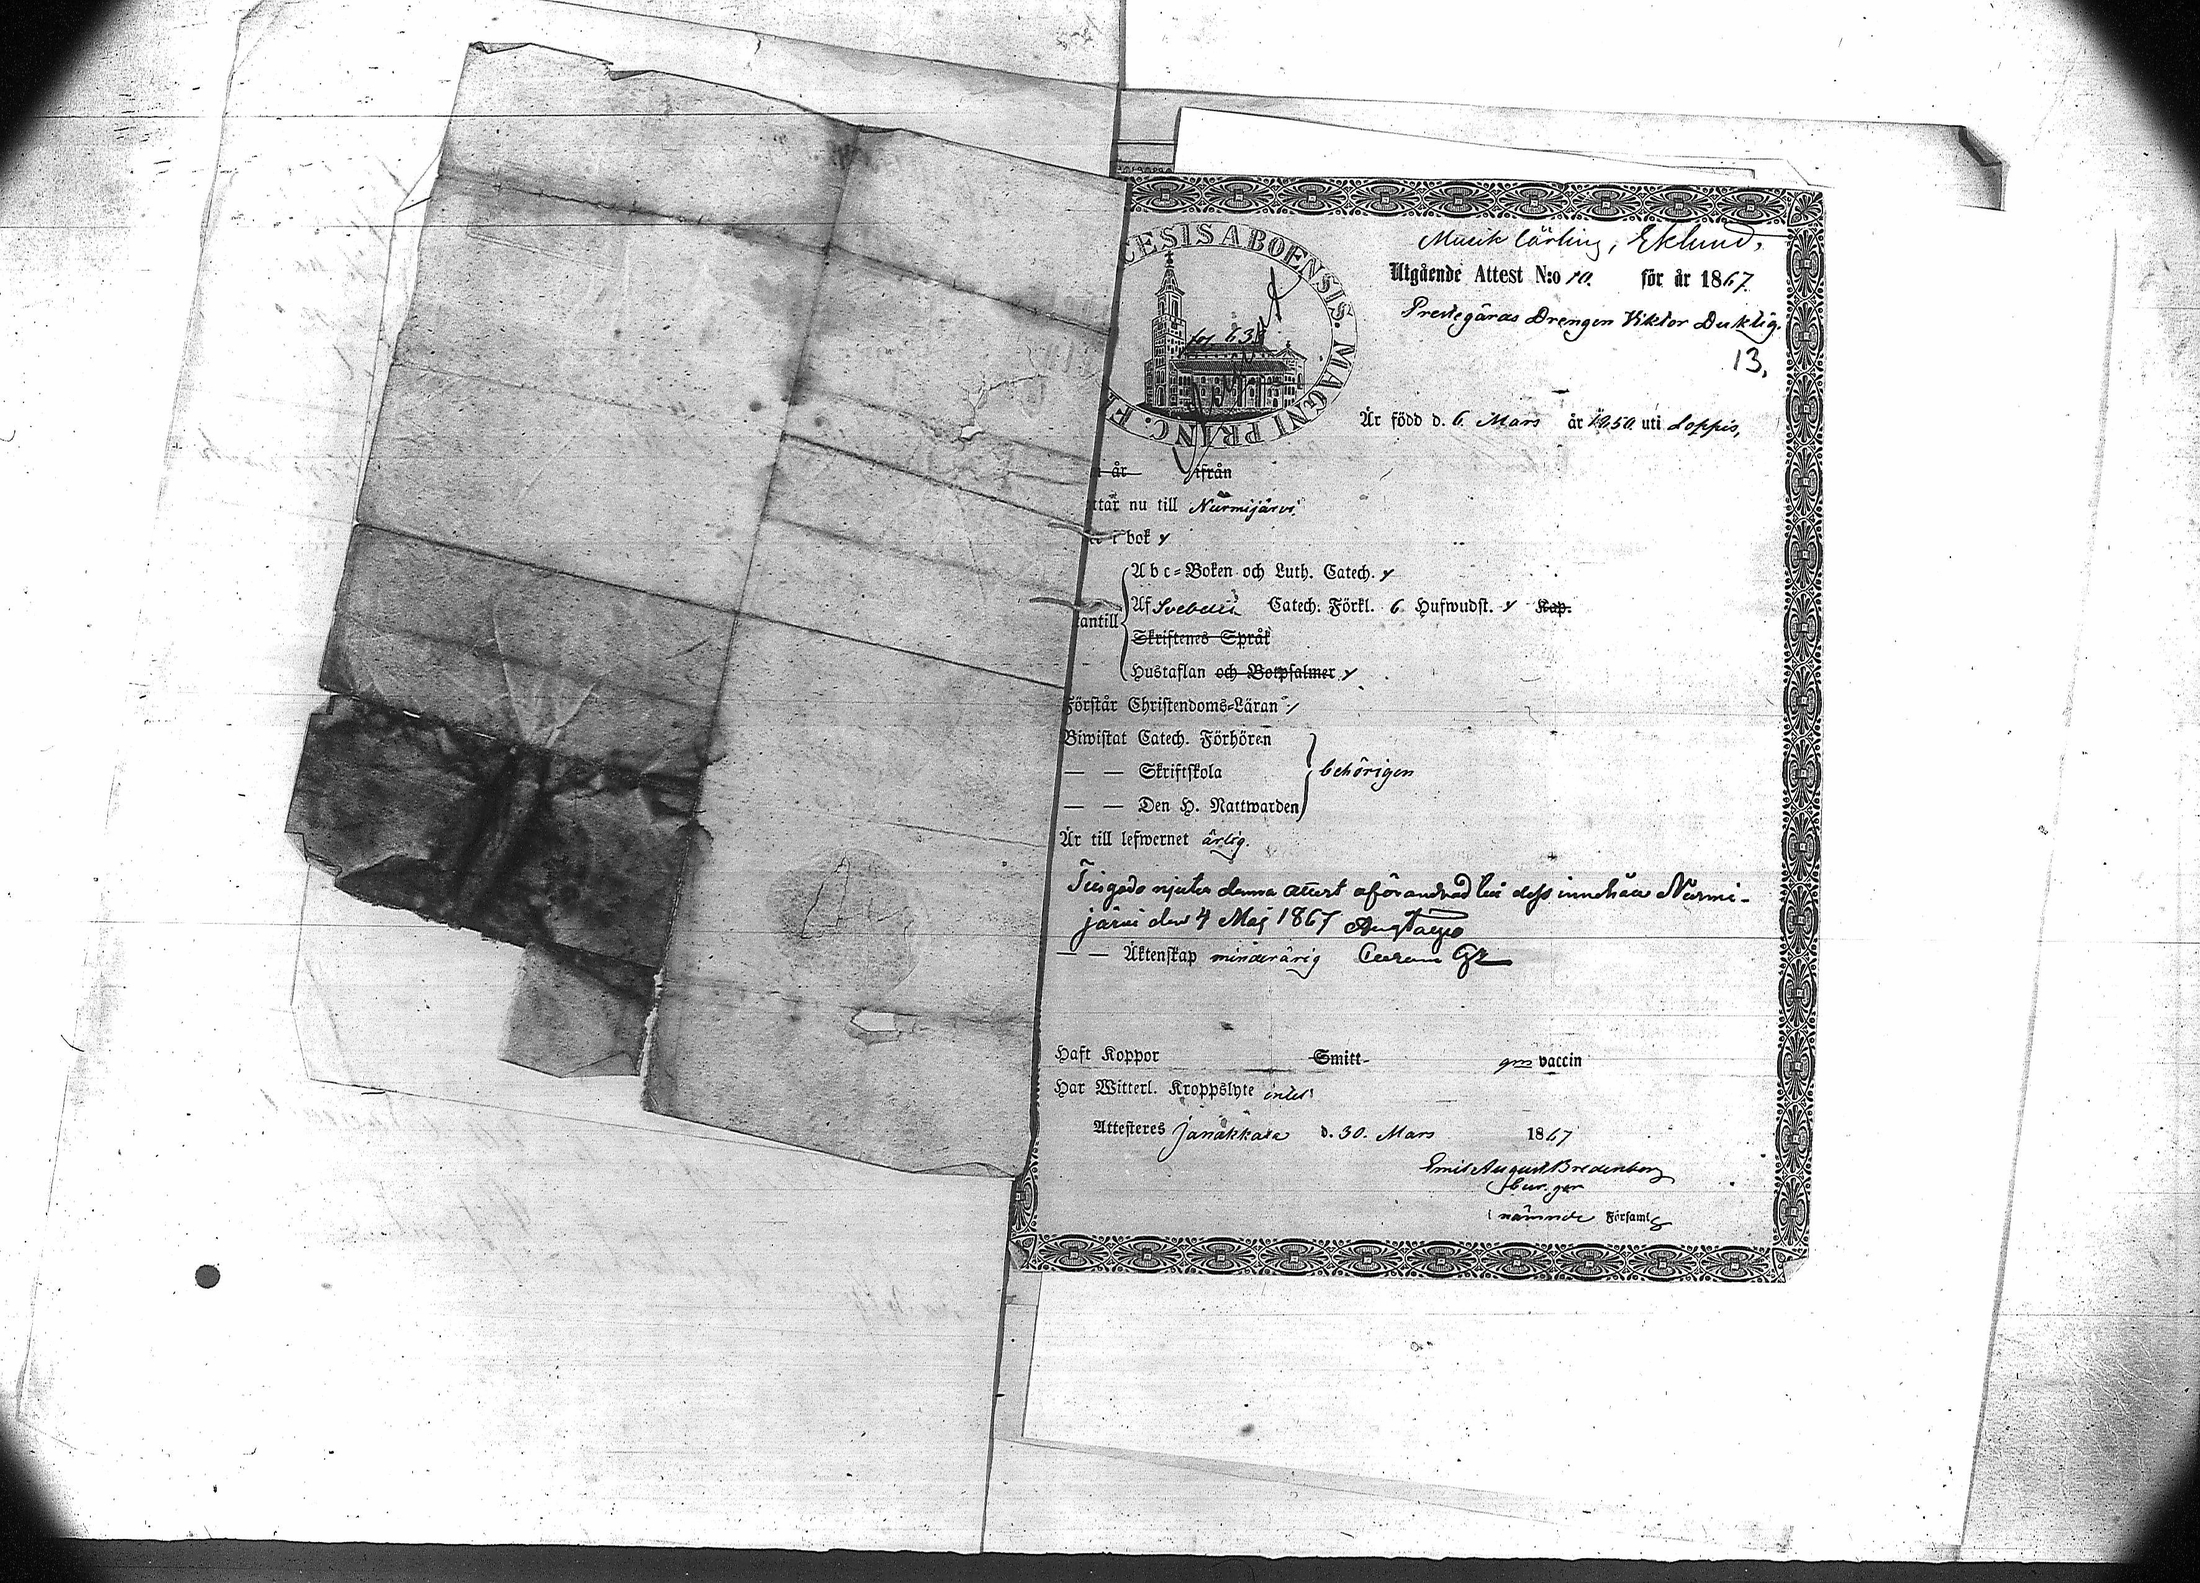 Musik Lärling, Eklund,
CESIS ABOENSIS. MAGNI PRINC. F
Utgående Attest N:o 10. för år 1867.
Prestegårds Drengen Viktor Duktig.
13,
fol 638
Är född d. 6 Mars år 1850 uti Loppis,
år ifrån
ttar nu till Nurmijärvi.
i bok y
Abc-Boken och Luth. Catech. y
Af Svebelii Catech. Förkl. 6 Hufwudst. y Kap.
antill
Skriftenes Språk
Hustaflan och Botpsalmer y
Förstår Christendoms-Läran
Biwistat Catech. Förhören
— — Skriftskola behörigen
— — Den H. Nattwarden
Är till lefwernet ärlig.
njuta denna attest oförandrad till dess innehåll Nurmi-
järvi den 4 Maj 1867
— — Äktenskap minderårig
Haft Koppor Smitt- gm vaccin
Har Witterl. Kroppslyte intet
Attesteres Janakkala d. 30. Mars 1867
Emil August Bredenberg
i nämnde Församlg